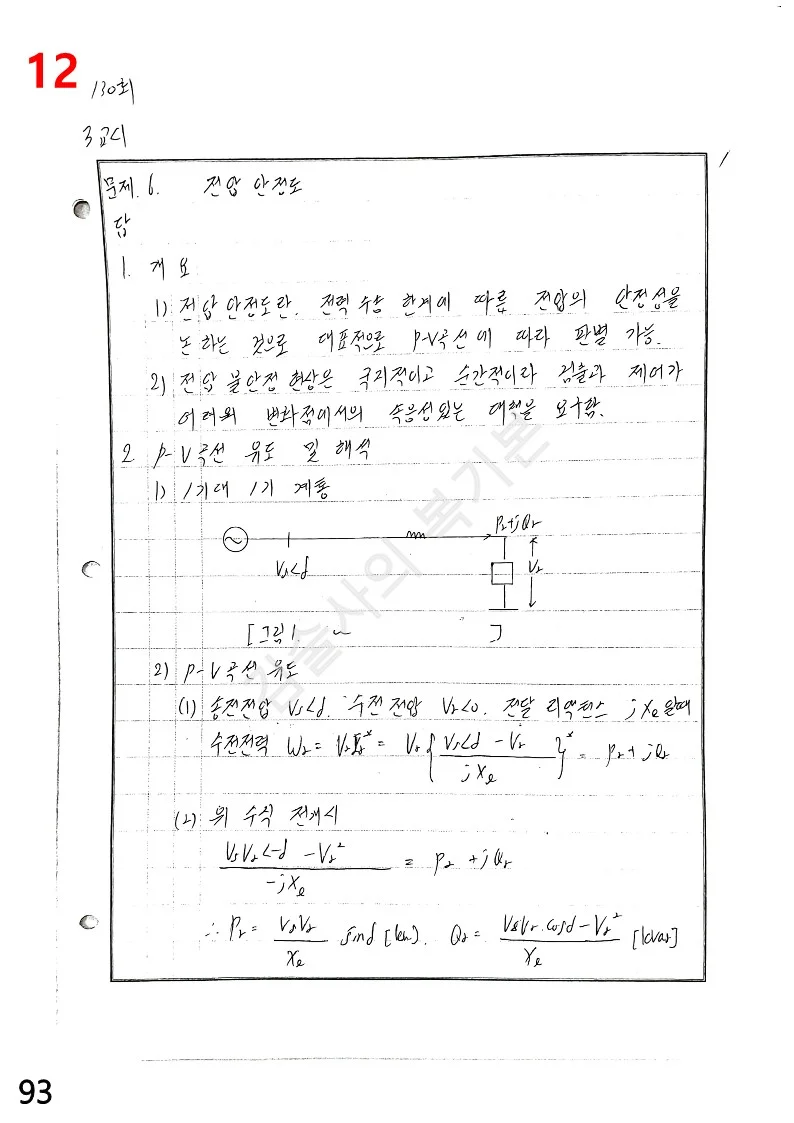 12
130회
3교시
1
문제.6. 전압 안정도
답
1. 개요
1) 전압안정도란. 전력 수송 한계에 따른 전압의 안정성을
논하는 것으로 대표적으로 P-V곡선에 따라 판별 가능.
2) 전압 불안정 현상은 국지적이고 순간적이라 검출과 제어가
어려워 변화점에서의 속응성있는 대책을 요구함.
2 P-V곡선 유도 및 해석
1) 1기대 1기 계통
Pr+jQr
Vs<d
Vr
[그림1. ~ ]
2) P-V곡선 유도
(1) 송전전압 Vs<d. 수전 전압 Vr<0. 전달 리액턴스 jXe일때
수전전력 Wr = VrIr* = Vr{(Vs<d - Vr)/(jXe)}* = Pr + jQr
(2) 위 수식 전개시
(VsVr<-d - Vr²)/(-jXe) = Pr + jQr
∴ Pr = (VsVr/Xe) sind [kw]. Qr = (VsVr.cosd - Vr²)/Xe [kvar]
기술사의 복기본
93